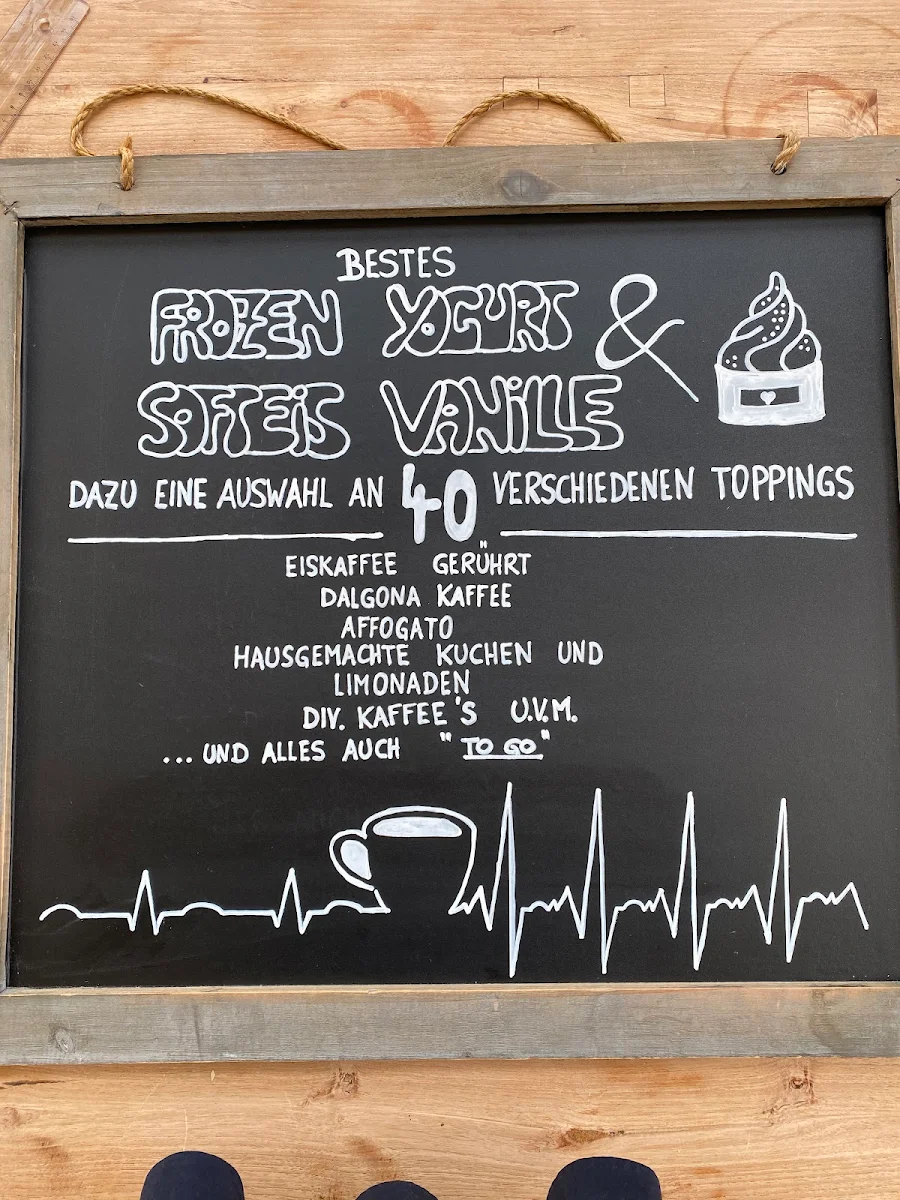 BESTES
FROZEN YOGURT &
SOFTEiS VANiLLE
DAZU EINE AUSWAHL AN 40 VERSCHIEDENEN TOPPINGS
EISKAFFEE GERÜHRT
DALGONA KAFFEE
AFFOGATO
HAUSGEMACHTE KUCHEN UND
LIMONADEN
DIV. KAFFEE'S U.V.M.
... UND ALLES AUCH "TO GO"